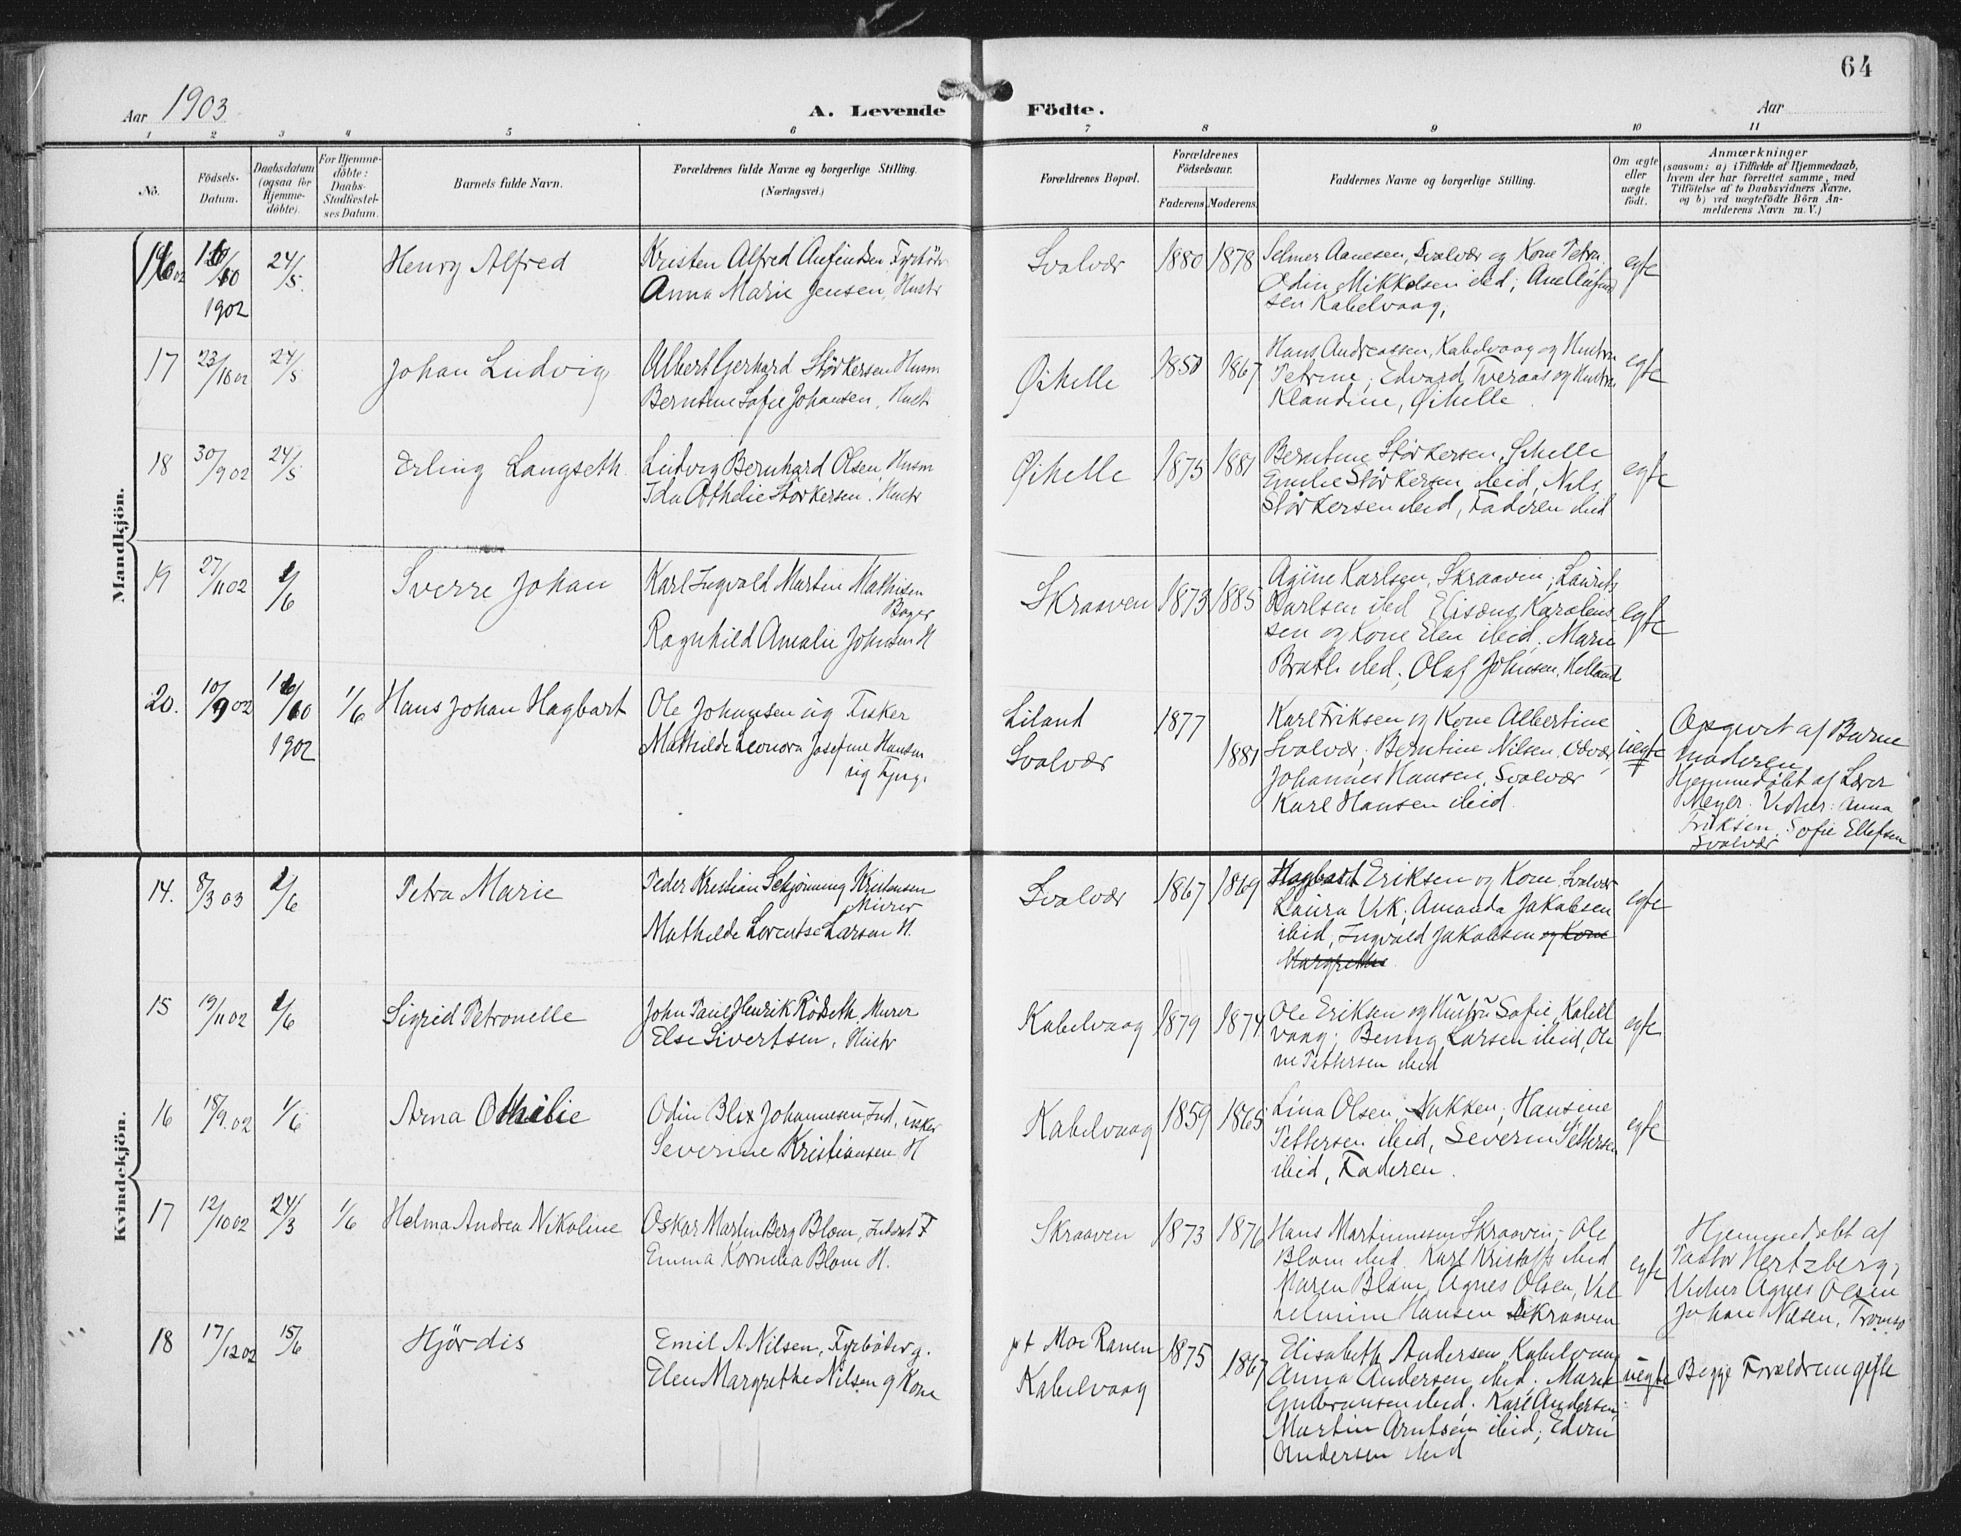 64
Aar 1903
A. Levende Födte.
Aar
1 2 3 4 5 6 7 8 9 10 11
No.
Födsels-Datum.
Daabsdatum (ogsaa for Hjemme-döbte).
For Hjemme-döbte: Daabs-Stadfæstel-ses Datum.
Barnets fulde Navn.
Forældrenes fulde Navne og borgerlige Stilling. (Næringsvei.)
Forældrenes Bopæl.
Forældrenes Födselsaar.
Faderens. Moderens.
Faddernes Navne og borgerlige Stilling.
Om ægte eller uægte födt.
Anmærkninger
(saasom: a) i Tilfælde af Hjemmedaab, hvem der har forrettet samme, med Tilföielse af to Daabsvidners Navne, og b) ved uægtefödte Börn An-melderens Navn m. V.)
Mandkjön.
16 10/10 1902 24/5 Henry Alfred
Kristen Alfred Aufindsen Fyrbøter
Anna Marie Jensen, Hustr
Svolvær 1880 1878
Selmer Aanesen, Svolvær og Kone Petra
Odin Mikkelsen ibid; Ane Aufind
sen Kabelvaag,
egte
17 23/10 02 24/5 Johan Ludvig
Albert Gerhard Størkersen Husm
Berntine Sofie Johansen, Hustr
Øihelle 1850 1867
Hans Andreassen, Kabelvaag og Hustru
Petrine; Edvard Tveraas og Hustru
Klaudine, Øihelle.
egte
18 30/9 02 24/5 Erling Langseth
Ludvig Bernhard Olsen, Husm
Ida Othelie Størkersen, Hustr
Øihelle 1875 1881
Berntine Størkersen, Øihelle
Emilie Størkersen ibid, Nils
Størkersen ibid, Faderen ibid
egte
19 27/11 02 1/6 Sverre Johan
Karl Ingvald Martin Mathisen
Bager
Ragnhild Amalie Johnsen H
Skraaven 1873 1885
Agine Karlsen, Skraaven; Laurits
Karlsen ibid Elisæus Karolius
sen og Kone Elen ibid, Marie
Brath ibid; Olaf Johnsen, Helland
egte
20. 10/9 02 16/10 1902 1/6 Hans Johan Hagbart
Ole Johansen ug Fisker
Mathilde Leonora Josefine Hansen
ug Tjeng.
Liland 1877
Svolvær 1881
Karl Eriksen og Kone Albertine
Svolvær; Berntine Nilsen, Odvær,
Johannes Hansen, Svolvær
Karl Hansen ibid.
uegte
Opgivet af Barne
moderen
Hjemmedøbt af Lærer
Meyer. Vidner: Anna
Eriksen, Sofie Ellefsen
Svolvær
Kvindekjön.
14. 8/3 03 1/6 Petra Marie
Peder Kristian Schjønning Kristensen
Murer
Mathilde Lorentse Larsen H.
Svolvær 1867 1869
Hagbart Eriksen og Kone, Svolvær
Laura Vik; Amanda Jakobsen
ibid, Ingvald Jakobsen og Kone
Margrethe.
egte
15 19/11 02 1/6 Sigrid Petronelle
John Paul Henrik Rødseth Murer
Else Sivertsen, Hustr
Kabelvaag 1879 1874
Ole Eriksen og Hustru Sofie, Kabel
vaag; Benny Larsen ibid, Ole
ne Pettersen ibid
egte
16 18/9 02 1/6 Arna Othilie
Odin Blix Johannesen, Ind, Fisker
Severine Kristiansen H
Kabelvaag 1859 1865
Lina Olsen, Hansine
Pettersen ibid, Severin Pettersen
ibid, Faderen.
egte
17 12/10 02 24/3 1/6 Helma Andrea Nikoline
Oskar Martin Berg Blom, Inderst F
Emma Kornelia Blom H.
Skraaven 1873 1876
Hans Martinussen Skraaven; Ole
Blom ibid. Karl Kristoffs ibid
Maren Blom, Agnes Olsen, Vil
helmine Hansen Skraaven
egte
Hjemmedøbt af
Pastor Hertzberg,
Vidner Agnes Olsen
Johan Nilsen, Tromsø
18 17/12 02 15/6 Hjørdis
Emil A. Nilsen, Fyrbøter g.
Elen Margrethe Nilsen g Kone
pt Mo i Ranen 1875
Kabelvaag 1867
Elisabeth Andersen Kabelvaag
Anna Andersen ibid; Marie
Gulbransen ibid. Karl Andersen,
Martin Arntsen ibid; Edvin
Andersen ibid
uegte
Begge Forældre ugifte